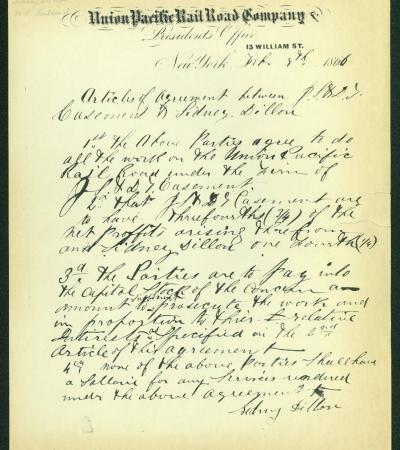 Union Pacific Rail Road Company
Presidents Office
13 WILLIAM ST.
New York Feb 8th 1866
Articles of agreement between J.S. & D.T.
Casement & Sidney Dillon
1st The Above Parties agree to do
all the work on the Union Pacific
Rail Road under the firm of
J.S. & D.T. Casement
2d that J.S. & D.T. Casement are
to have threefourths (3/4) of the
net Profits arising therefrom
and Sidney Dillon one fourth (1/4)
3d The Parties are to Pay into
the Capital Stock of the concern an
amount sufficient to prosecute the work and
in proportion to their relative
Interests as Specified on the 2nd
Article of this agreement
4th none of the above Parties Shall have
a Sallarie for any Services rendered
under the above agreement
Sidney Dillon